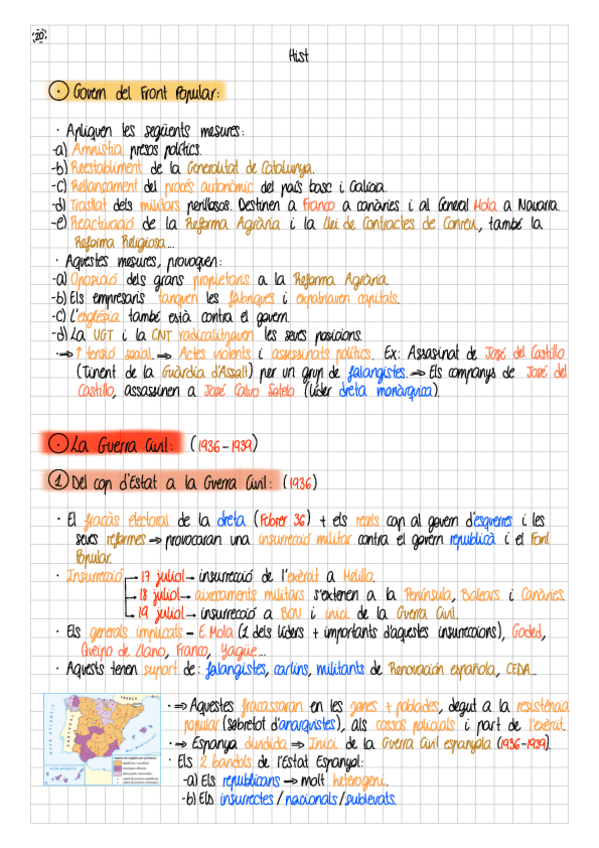 20
Hist
Govern del Front Popular:
· Apliquen les següents mesures:
-a) Amnistia presos polítics.
-b) Reestabliment de la Generalitat de Catalunya.
-c) Rellançament del procés autonòmic del país basc i Galícia.
-d) Trasllat dels militars perillosos. Destinen a Franco a canàries i al General Mola a Navarra.
-e) Reactivació de la Reforma Agrària i la Llei de Contractes de Conreu, també la
Reforma Religiosa...
· Aquestes mesures, provoquen:
-a) Oposició dels grans propietaris a la Reforma Agrària.
-b) Els empresaris tanquen les fàbriques i expatriaven capitals.
-c) L'església també està contra el govern.
-d) La UGT i la CNT radicalitzaven les seves posicions.
·⇒ ↑ tensió social. ⇒ Actes violents i assessinats polítics. Ex: Assasinat de José del Castillo
(Tinent de la Guàrdia d'Assalt) per un grup de falangistes. ⇒ Els companys de José del
Castillo, assassinen a José Calvo Sotelo (líder dreta monàrquica).
· La Guerra Civil: (1936-1939)
1 Del cop d'Estat a la Guerra Civil: (1936)
· El fracàs electoral de la dreta (Febrer 36) + els recels cap al govern d'esquerres i les
seves reformes ⇒ provocaran una insurrecció militar contra el govern republicà i el Font
Popular.
· Insurrecció → 17 juliol → insurrecció de l'exèrcit a Melilla.
→ 18 juliol → aixecaments militars s'extenen a la Península, Balears i Canàries.
→ 19 juliol → insurrecció a BCN i inici de la Guerra Civil.
· Els generals implicats - E. Mola (1 dels líders + importants d'aquestes insurreccions), Goded,
Queipo de Llano, Franco, Yagüe...
· Aquests tenen suport de: falangistes, carlins, militants de Renovación española, CEDA...
·⇒ Aquestes fracassaran en les zones + poblades, degut a la resistència
popular (sobretot d'anarquistes), als cossos policials i part de l'exèrcit.
·⇒ Espanya dividida ⇒ Inici de la Guerra Civil espanyola (1936-1939).
· Els 2 bandols de l'Estat Espanyol:
-a) Els republicans ⇒ molt heterogeni.
-b) Els insurrectes / nacionals / sublevats.